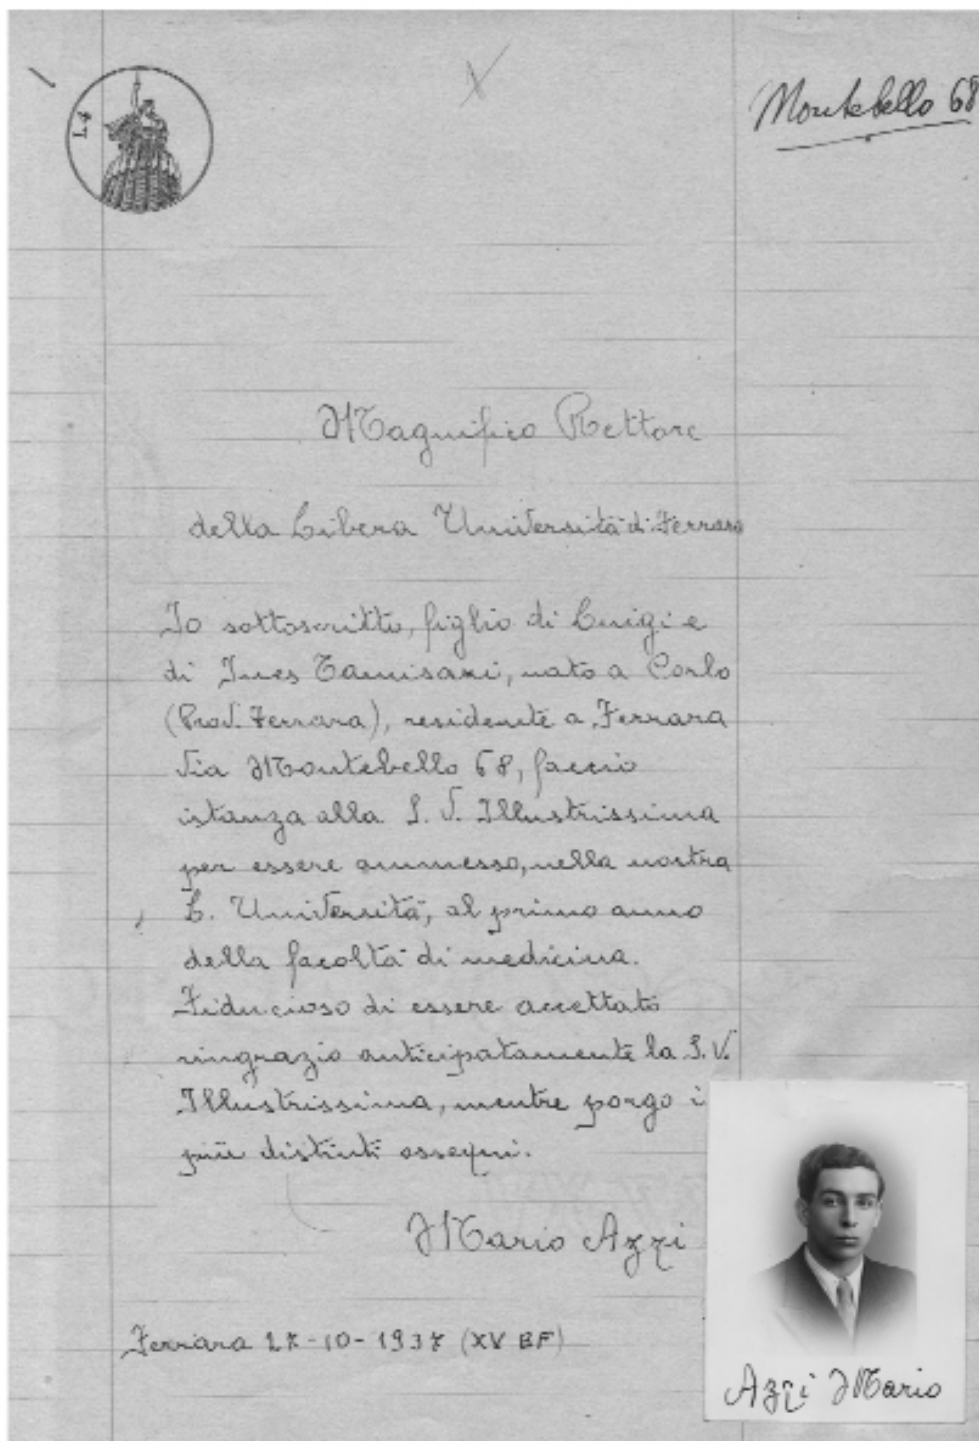 L4
Montebello 68
Magnifico Rettore
della Libera Università di Ferrara
Io sottoscritto, figlio di Luigi e
di Ines Tamisari, nato a Corlo
(Prov. Ferrara), residente a Ferrara
Via Montebello 68, faccio
istanza alla S. V. Illustrissima
per essere ammesso, nella nostra
L. Università, al primo anno
della facoltà di medicina.
Fiducioso di essere accettato
ringrazio anticipatamente la S. V.
Illustrissima, mentre porgo i
più distinti ossequi.
Mario Azzi
Ferrara 27-10-1937 (XV EF)
Azzi Mario